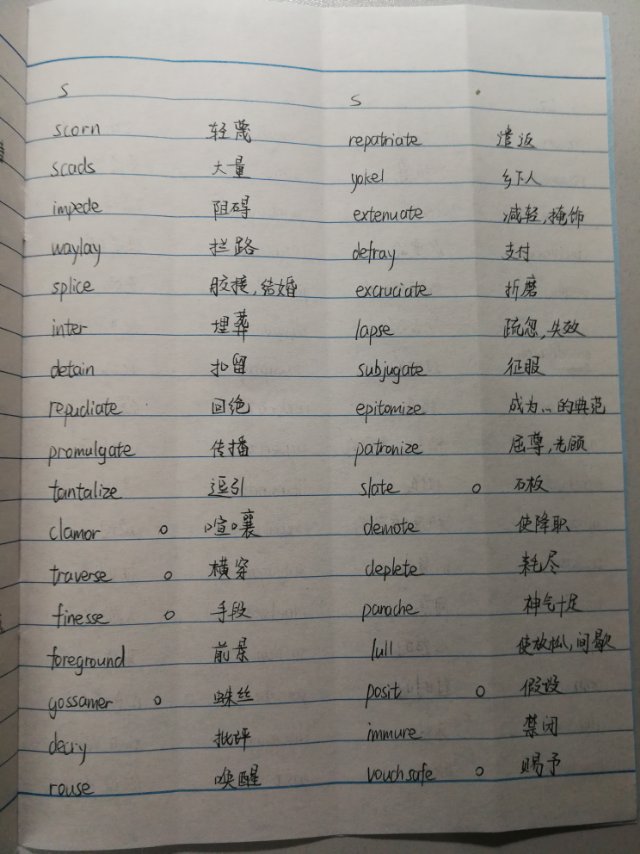 s
scorn 轻蔑
scads 大量
impede 阻碍
waylay 拦路
splice 胶接,结婚
inter 埋葬
detain 扣留
repudiate 回绝
promulgate 传播
tantalize 逗引
clamor o 喧嚷
traverse o 横穿
finesse o 手段
foreground 前景
gossamer o 蛛丝
decry 批评
rouse 唤醒
s
repatriate 遣返
yokel 乡下人
extenuate 减轻,掩饰
defray 支付
excruciate 折磨
lapse 疏忽,失效
subjugate 征服
epitomize 成为...的典范
patronize 屈尊,光顾
slate o 石板
demote 使降职
deplete 耗尽
panache 神气十足
lull 使放松,间歇
posit o 假设
immure 禁闭
vouchsafe o 赐予